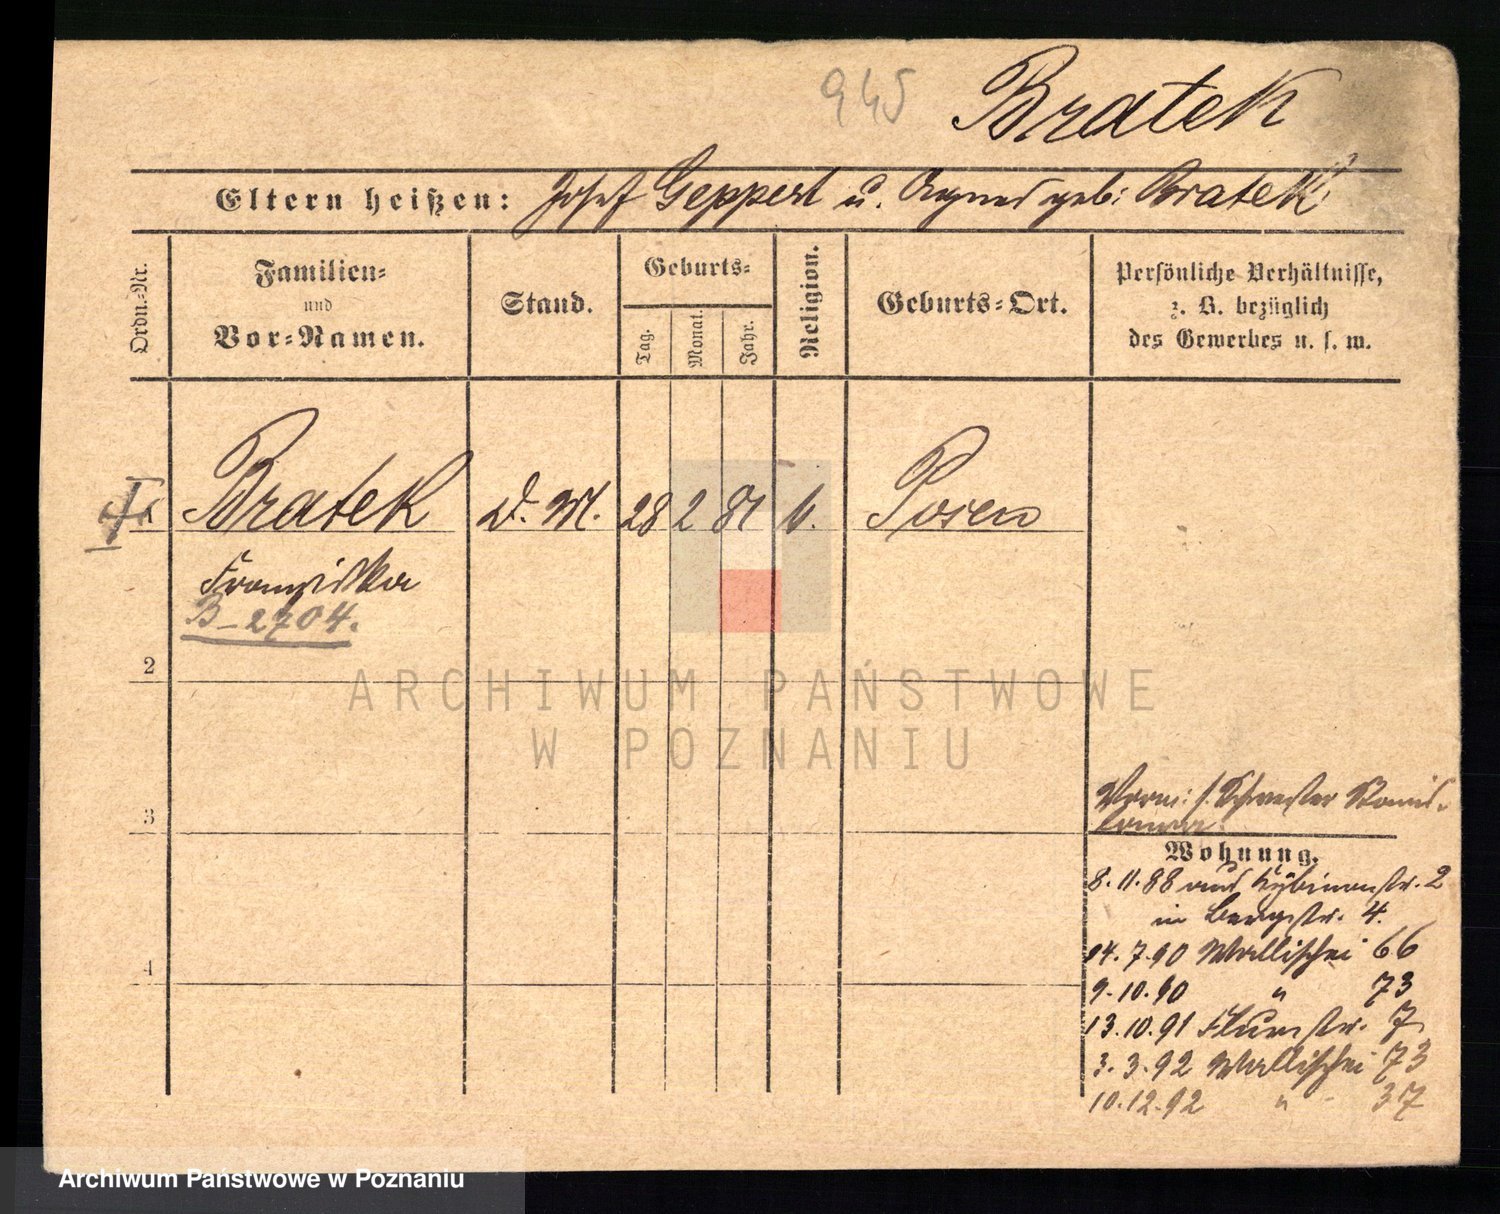 945 Bratek
Eltern heißen: Josef Geppert u. Agnes geb: Bratek
Ordn.-Nr.
Familien-
und
Vor-Namen.
Stand.
Geburts-
Tag.
Monat.
Jahr.
Religion.
Geburts-Ort.
Persönliche Verhältnisse,
z. B. bezüglich
des Gewerbes u. s. w.
1 Bratek D. M. 28 2 81 k. Posen
Franziska
B-2704.
2
ARCHIWUM PAŃSTWOWE
W POZNANIU
3
4
Schwester Stanis-
Wohnung.
8.11.88 aus 2
in Bergstr. 4.
14.7.90 Wallischei 66
9.10.90 " 73
13.10.91 7
3.3.92 Wallischei 73
10.12.92 " 37
Archiwum Państwowe w Poznaniu